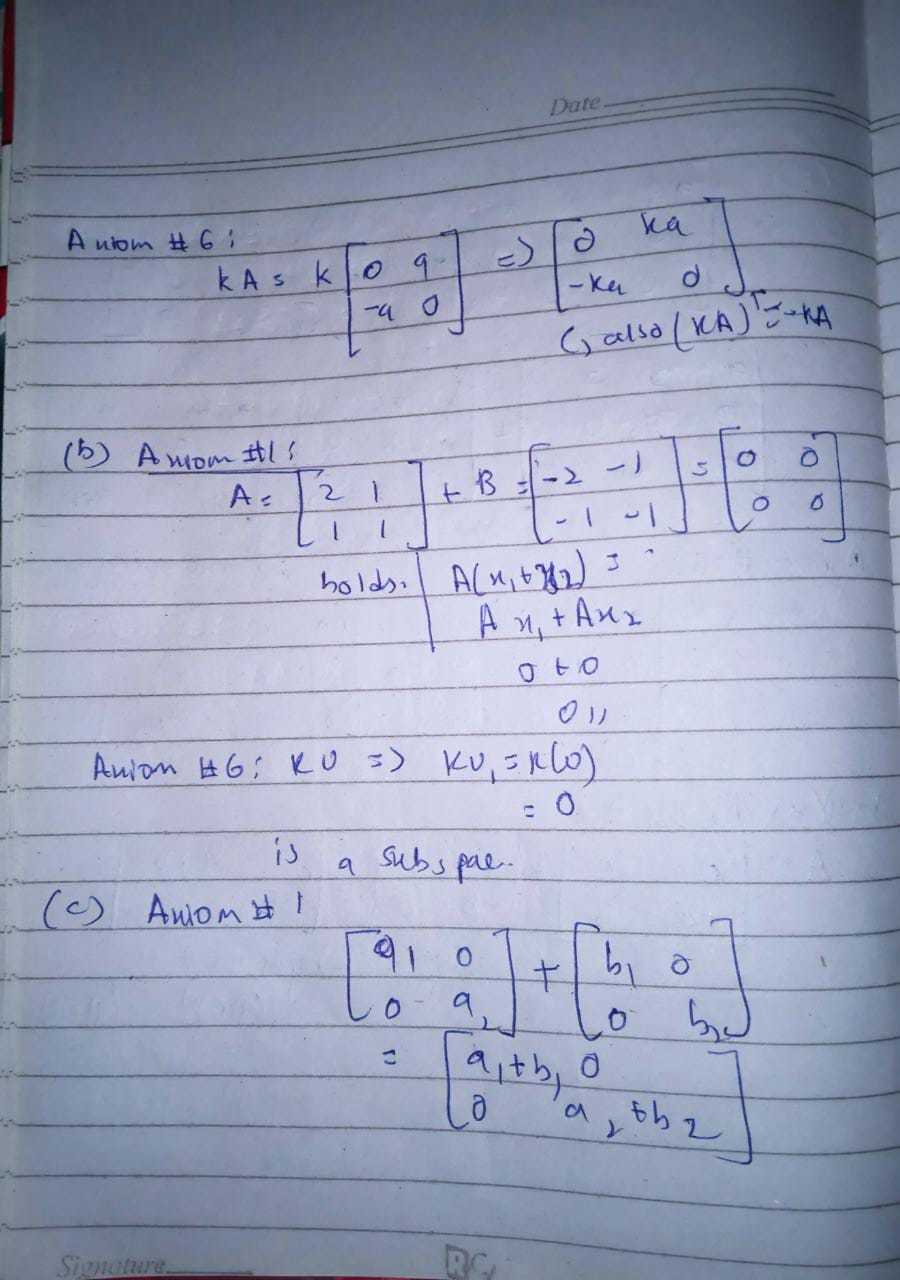 Date
Axiom # 6 :
kA = k [0 a
-a 0] => [0 ka
-ka 0]
↳ also (KA)ᵀ = -KA
(b) Axiom #1 :
A = [2 1
1 1] + B = [-2 -1
-1 -1] = [0 0
0 0]
holds. | A(x₁+x₂) =
Ax₁ + Ax₂
0 + 0
0 ,,
Axiom #6 : KU => KU₁ = K(0)
= 0
is a subspae.
(c) Axiom # 1
[a₁ 0
0 a₂] + [b₁ 0
0 b₂]
= [a₁+b₁ 0
0 a₂+b₂]
Signature